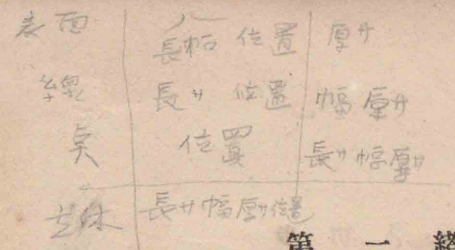 表面 長幅 位置 厚サ
線 長サ 位置 幅 厚サ
点 位置 長サ 幅 厚サ
立体 長サ 幅 厚サ 位置
第一